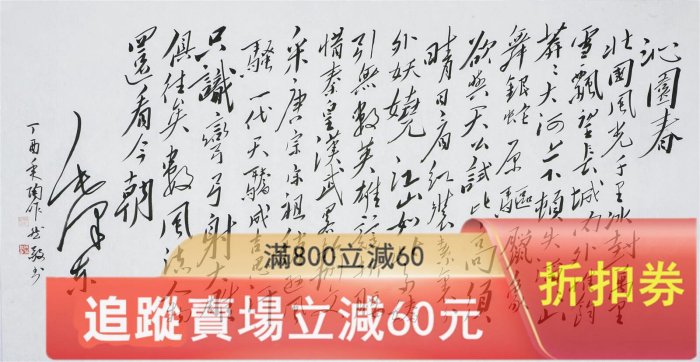 沁園春
北國風光千里冰封萬里
雪飄望長城內外
莽々大河上下頓失山
舞銀蛇原驅臘象
欲與天公試比高須
晴日看紅裝素
外妖嬈江山如多
引無數英雄
惜秦皇漢武
采唐宗宋祖稍遜
騷一代天驕成吉思汗
只識彎弓射大雕
俱往矣數風流人
還看今朝
毛澤東
丁酉
滿800立減60
追蹤賣場立減60元
折扣券